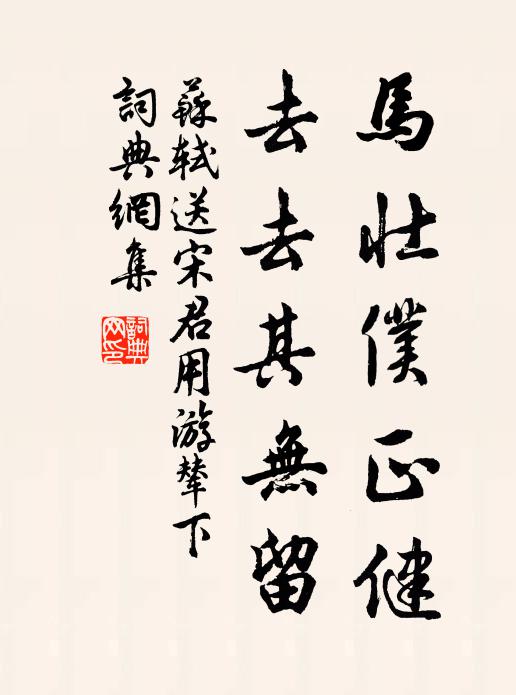 馬壯僕正健
去去其無留
蘇軾送宋君用游輦下
詞典網集
詞典網印